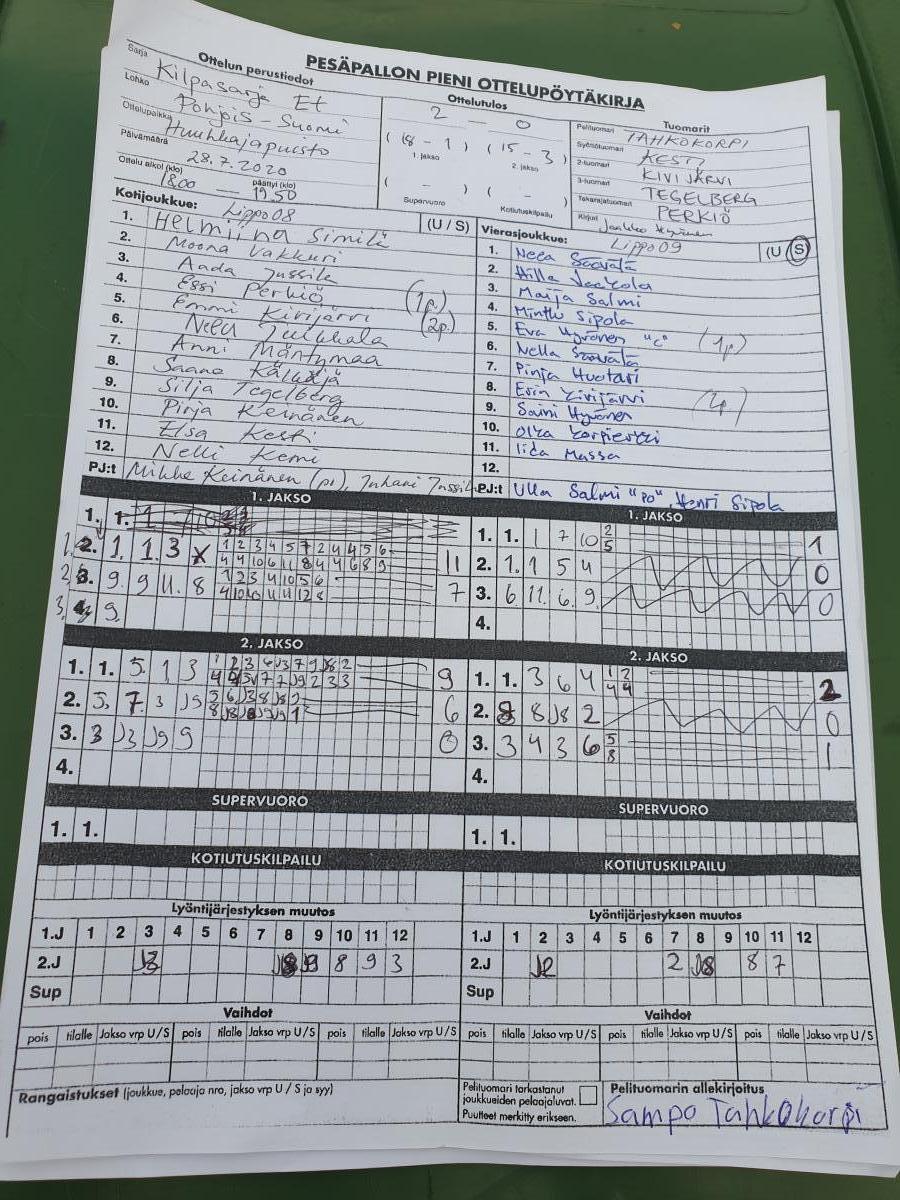 PESÄPALLON PIENI OTTELUPÖYTÄKIRJA
Ottelun perustiedot
Sarja
Kilpasarja Et
Lohko
Pohjois-Suomi
Ottelupaikka
Huuhkajapuisto
Päivämäärä
28.7.2020
Ottelu alkoi (klo) päättyi (klo)
1800 — 19.50
Ottelutulos
2 — 0
(18 - 1) (15 - 3)
1. jakso 2. jakso
( - ) ( - )
Supervuoro Kotiutuskilpailu
Tuomarit
Pelituomari TAHKOKORPI
Syöttötuomari KESTI
2-tuomari KIVIJÄRVI
3-tuomari TEGELBERG
Takarajatuomari PERKIÖ
Kirjuri Jarkko Hyvönen
Kotijoukkue: Lippo08 (U / S)
1. Helmiina Similä
2. Moona Vakkuri
3. Aada Jussila
4. Essi Perkiö
5. Emmi Kivijärvi (1p.)
6. Nelu (2p.)
7. Anni Mäntymaa
8. Saana
9. Silja Tegelberg
10. Pinja Keinänen
11. Elsa Kesti
12. Nelli Kemi
PJ:t Mikko Keinänen (pj), Juhani Jussila
Vierasjoukkue: Lippo09 (U / S)
1. Neea Saavala
2. Hilla Jaakola
3. Maija Salmi
4. Minttu Sipola
5. Eva Hyvönen "C" (1p)
6. Nella Saavala
7. Pinja Huotari
8. Erin Kivijärvi
9. Saini Hyvönen
10. Olga
11. Iida Massa
12.
PJ:t Ulla Salmi "PJ" Henri Sipola
1. JAKSO
1. 1.
2. 1. 1. 3 X 1 2 3 4 5 7 2 4 4 5 6
4 4 10 6 11 8 4 4 6 8 9 11
3. 9. 9 11. 8 1 2 3 4 10 5 6 7
4. 9.
1. JAKSO
1. 1. 1 7 10 2 1
5
2. 1. 1 5 4 0
3. 6 11. 6. 9. 0
4.
2. JAKSO
1. 1. 5. 1 3 9
2. 5. 7. 3 J9 6
3. 3 J3 J9 9 0
4.
2. JAKSO
1. 1. 3 6 4 1 2 2
4 4
2. 8 8 J8 2 0
3. 3 4 3 6 5 1
8
4.
SUPERVUORO
1. 1.
SUPERVUORO
1. 1.
KOTIUTUSKILPAILU
KOTIUTUSKILPAILU
Lyöntijärjestyksen muutos
1.J 1 2 3 4 5 6 7 8 9 10 11 12
2.J J3 J8 J9 8 9 3
Sup
Lyöntijärjestyksen muutos
1.J 1 2 3 4 5 6 7 8 9 10 11 12
2.J J2 2 J8 8 7
Sup
Vaihdot
pois tilalle Jakso vrp U / S pois tilalle Jakso vrp U / S pois tilalle Jakso vrp U / S
Vaihdot
pois tilalle Jakso vrp U / S pois tilalle Jakso vrp U / S pois tilalle Jakso vrp U / S
Rangaistukset (joukkue, pelaaja nro, jakso vrp U / S ja syy)
Pelituomari tarkastanut
joukkueiden pelaajaluvat.
Puutteet merkitty erikseen.
Pelituomarin allekirjoitus
Sampo Tahkokorpi